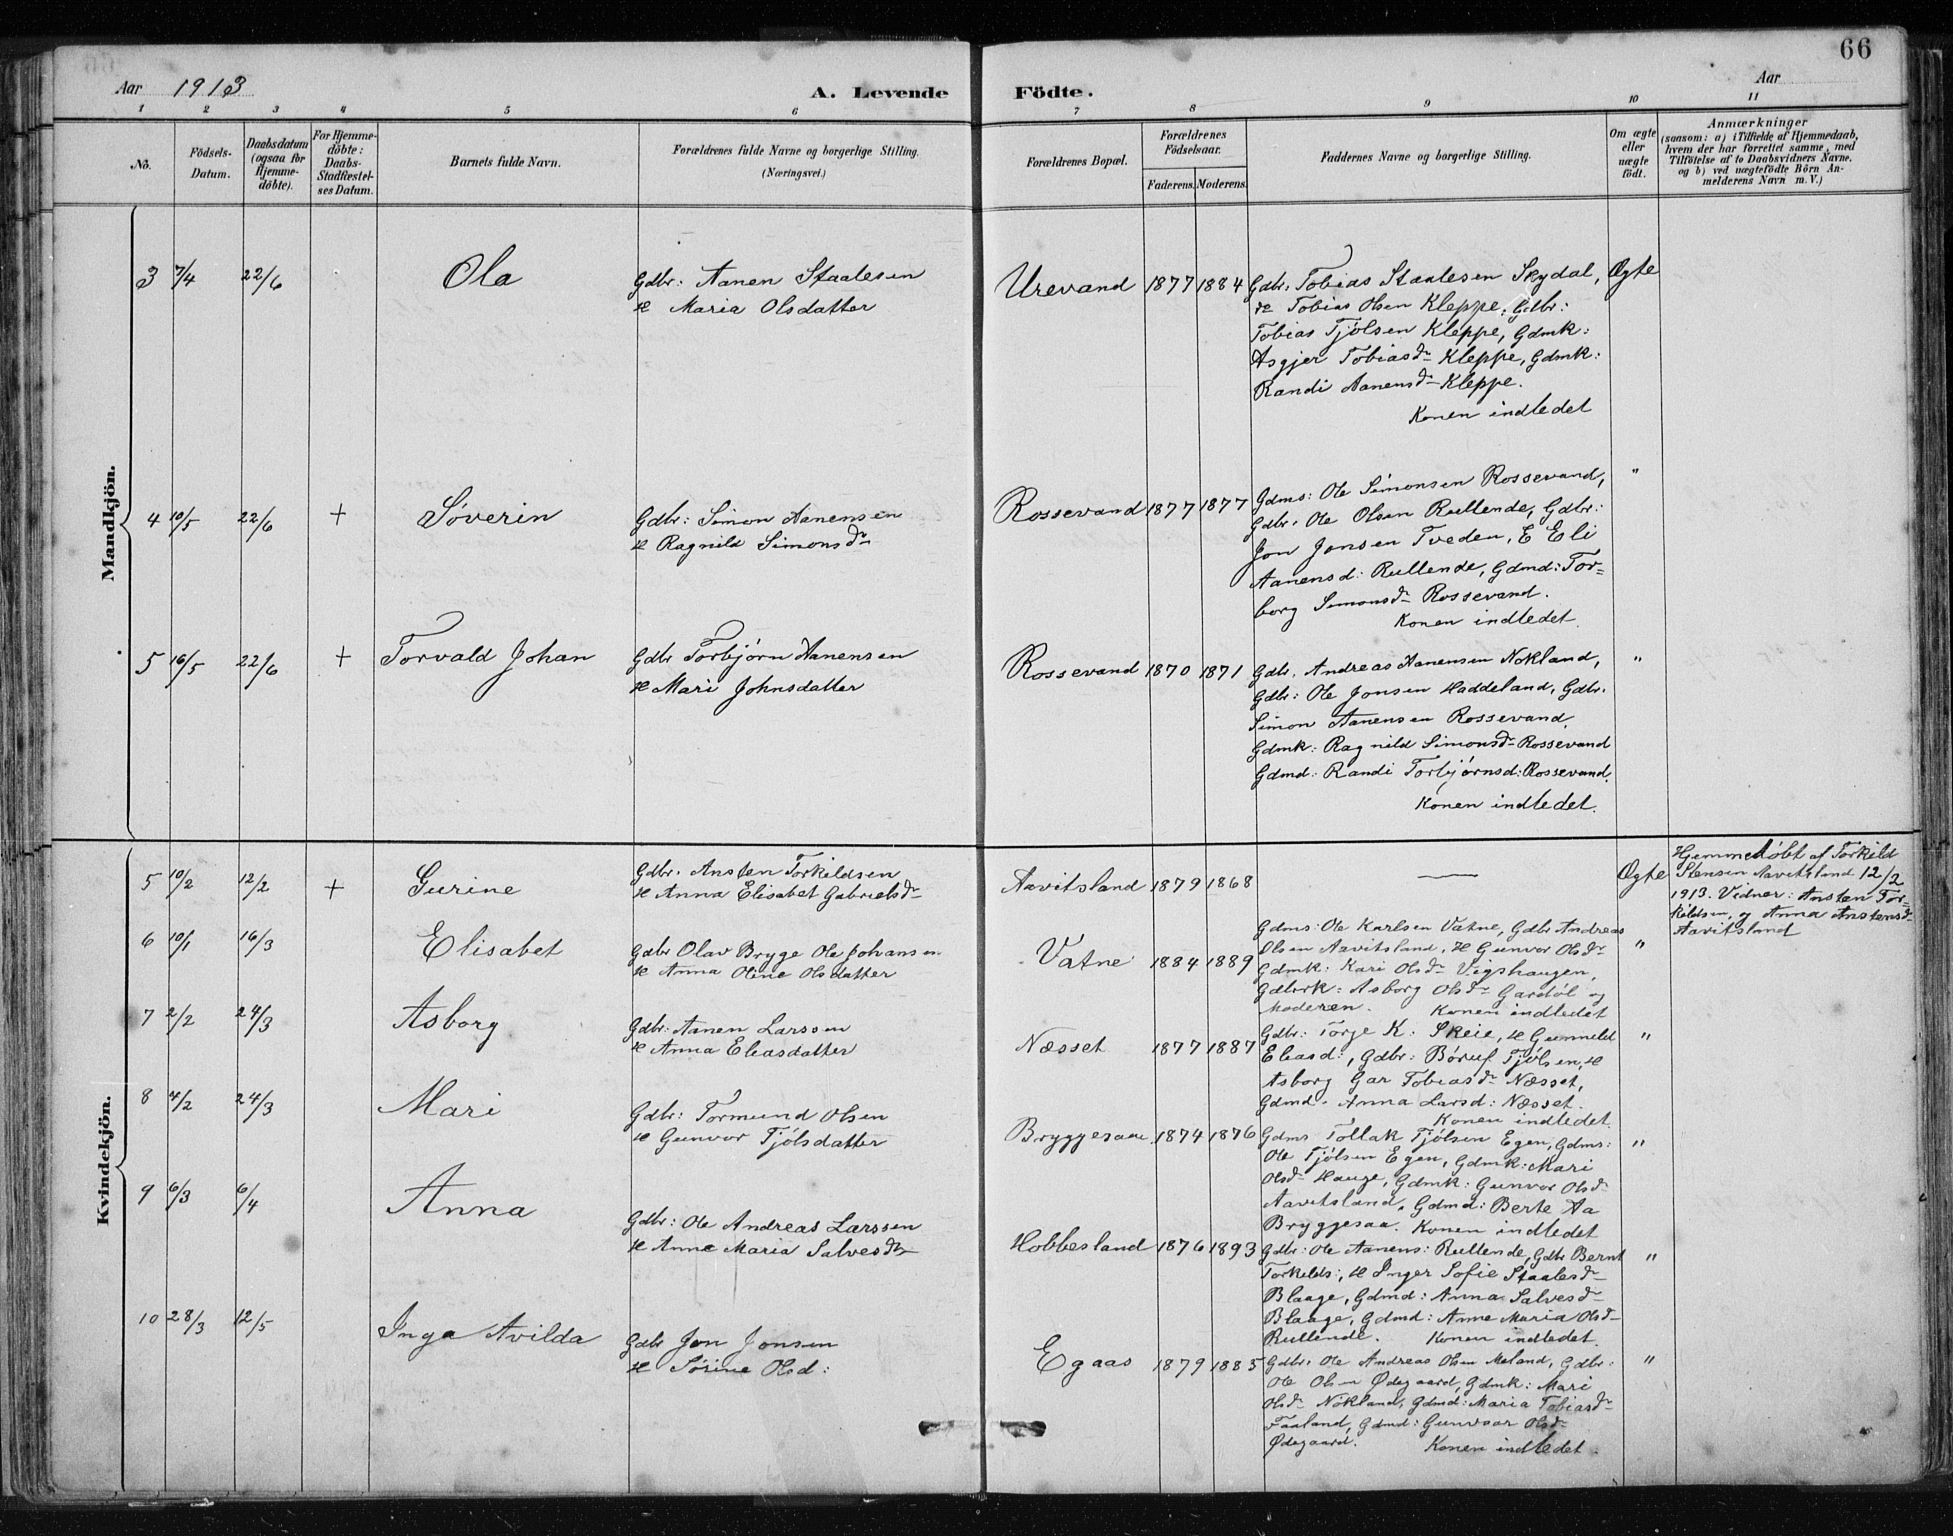 66
Aar 1913
A. Levende Födte.
Aar
1 2 3 4 5 6 7 8 9 10 11
No.
Födsels-Datum.
Daabsdatum (ogsaa for Hjemme-döbte).
For Hjemme-döbte: Daabs-Stadfæstel-ses Datum.
Barnets fulde Navn.
Forældrenes fulde Navne og borgerlige Stilling.
(Næringsvei.)
Forældrenes Bopæl.
Forældrenes Födselsaar.
Faderens. Moderens.
Faddernes Navne og borgerlige Stilling.
Om ægte eller uægte födt.
Anmærkninger
(saasom: a) i Tilfælde af Hjemmedaab,
hvem der har forrettet samme, med
Tilföielse af to Daabsvidners Navne.
og b) ved uægtefödte Börn An-
melderens Navn m.V.)
Mandkjön.
3 7/4 22/6 Ola
Gdbr: Aanen Staalesen
H Maria Olsdatter
Urevand 1877 1884
Gdbr. Tobias Staalesen Skydal,
Tobias Olsen Kleppe, Gdbr:
Tobias Tjölsen Kleppe, Gdmk:
Asgjer Tobiasdr Kleppe, Gdmk:
Randi Aanensdr Kleppe.
Konen indledet
Ægte
4 10/5 22/6 + Søverin
Gdbr: Simon Aanensen
H Ragnild Simonsdr
Rossevand 1877 1877
Gdms: Ole Simonsen Rossevand,
Gdbr. Ole Olsen Rullende, Gdbr:
Jon Jonsen Tveden, E Eli
Aanensd: Rullende, Gdmd: Tor=
borg Simonsdr Rossevand.
Konen indledet.
"
5 16/5 22/6 + Torvald Johan
Gdbr Torbjørn Aanensen
H Mari Johnsdatter
Rossevand 1870 1871
Gdbr. Andreas Aanensen Nokland,
Gdbr: Ole Jonsen Haddeland, Gdbr.
Simon Aanensen Rossevand,
Gdmk: Ragnild Simonsdr Rossevand
Gdmd: Randi Torbjørnsd: Rossevand.
Konen indledet.
"
Kvindekjön.
5 10/2 12/2 + Gurine
Gdbr. Ansten Torkildsen
H Anna Elisabet Gabrielsdr
Aavitsland 1879 1868
—
Ægte
Hjemmedöbt af Torkild
Stensen Aavitsland 12/2
1913. Vidner: Ansten Tor-
kildsen, og Anna Anstensdr
Aavitsland
6 10/1 16/3 Elisabet
Gdbr Olav Bryge Ole Johansen
H Anna Oline Olsdatter
Vatne 1884 1889
Gdms: Ole Karlsen Vatne, Gdbr Andreas
Olsen Aavitsland, H Gunvor Olsdr
Gdmk: Kari Olsdr Vigshaugen,
Gdbrk: Asborg Olsdr Gardöl og
Moderen. Konen indledet
"
7 2/2 24/3 Asborg
Gdbr: Aanen Larssen
H Anna Eleasdatter
Næsset 1877 1887
Gdbr: Torje K. Skeie, H Gunneld
Eleasd:, Gdbr: Böruf Tjölsen, H
Asborg Gar Tobiasdr Næsset,
Gdmd. Anna Larsd: Næsset.
Konen indledet.
"
8 4/2 24/3 Mari
Gdbr: Tormund Olsen
H Gunvor Tjölsdatter
Bryggesaa 1874 1876
Gdms Tollak Tjölsen Egen, Gdms:
Ole Tjölsen Egen, Gdmk: Mari
Olsdr Hauge, Gdmk: Gunvor Olsdr
Aavitsland, Gdmd: Berte Aa
Bryggesaa. Konen indledet
"
9 6/3 6/4 Anna
Gdbr: Ole Andreas Larssen
H Anne Maria Salvesdr
Hobbesland 1876 1893
Gdbr: Ole Aanens: Rullende, Gdbr Bernt
Torkilds:, H Inger Sofie Staalesdr
Blaage, Gdmd: Anna Salvesdr
Blaage, Gdmd: Anne Maria Olsdr
Rullende. Konen indledet.
"
10 28/3 12/5 Inga Avilda
Gdbr Jon Jonsen
H Sörine Olsd:
Egaas 1879 1885
Gdbr. Ole Andreas Olsen Meland, Gdbr:
Ole Olsen Ødegaard, Gdmk: Mari
Olsdr Nökland, Gdmd: Maria Tobiasdr
Faaland, Gdmd: Gunvaar Olsdr
Ødegaard. Konen indledet.
"